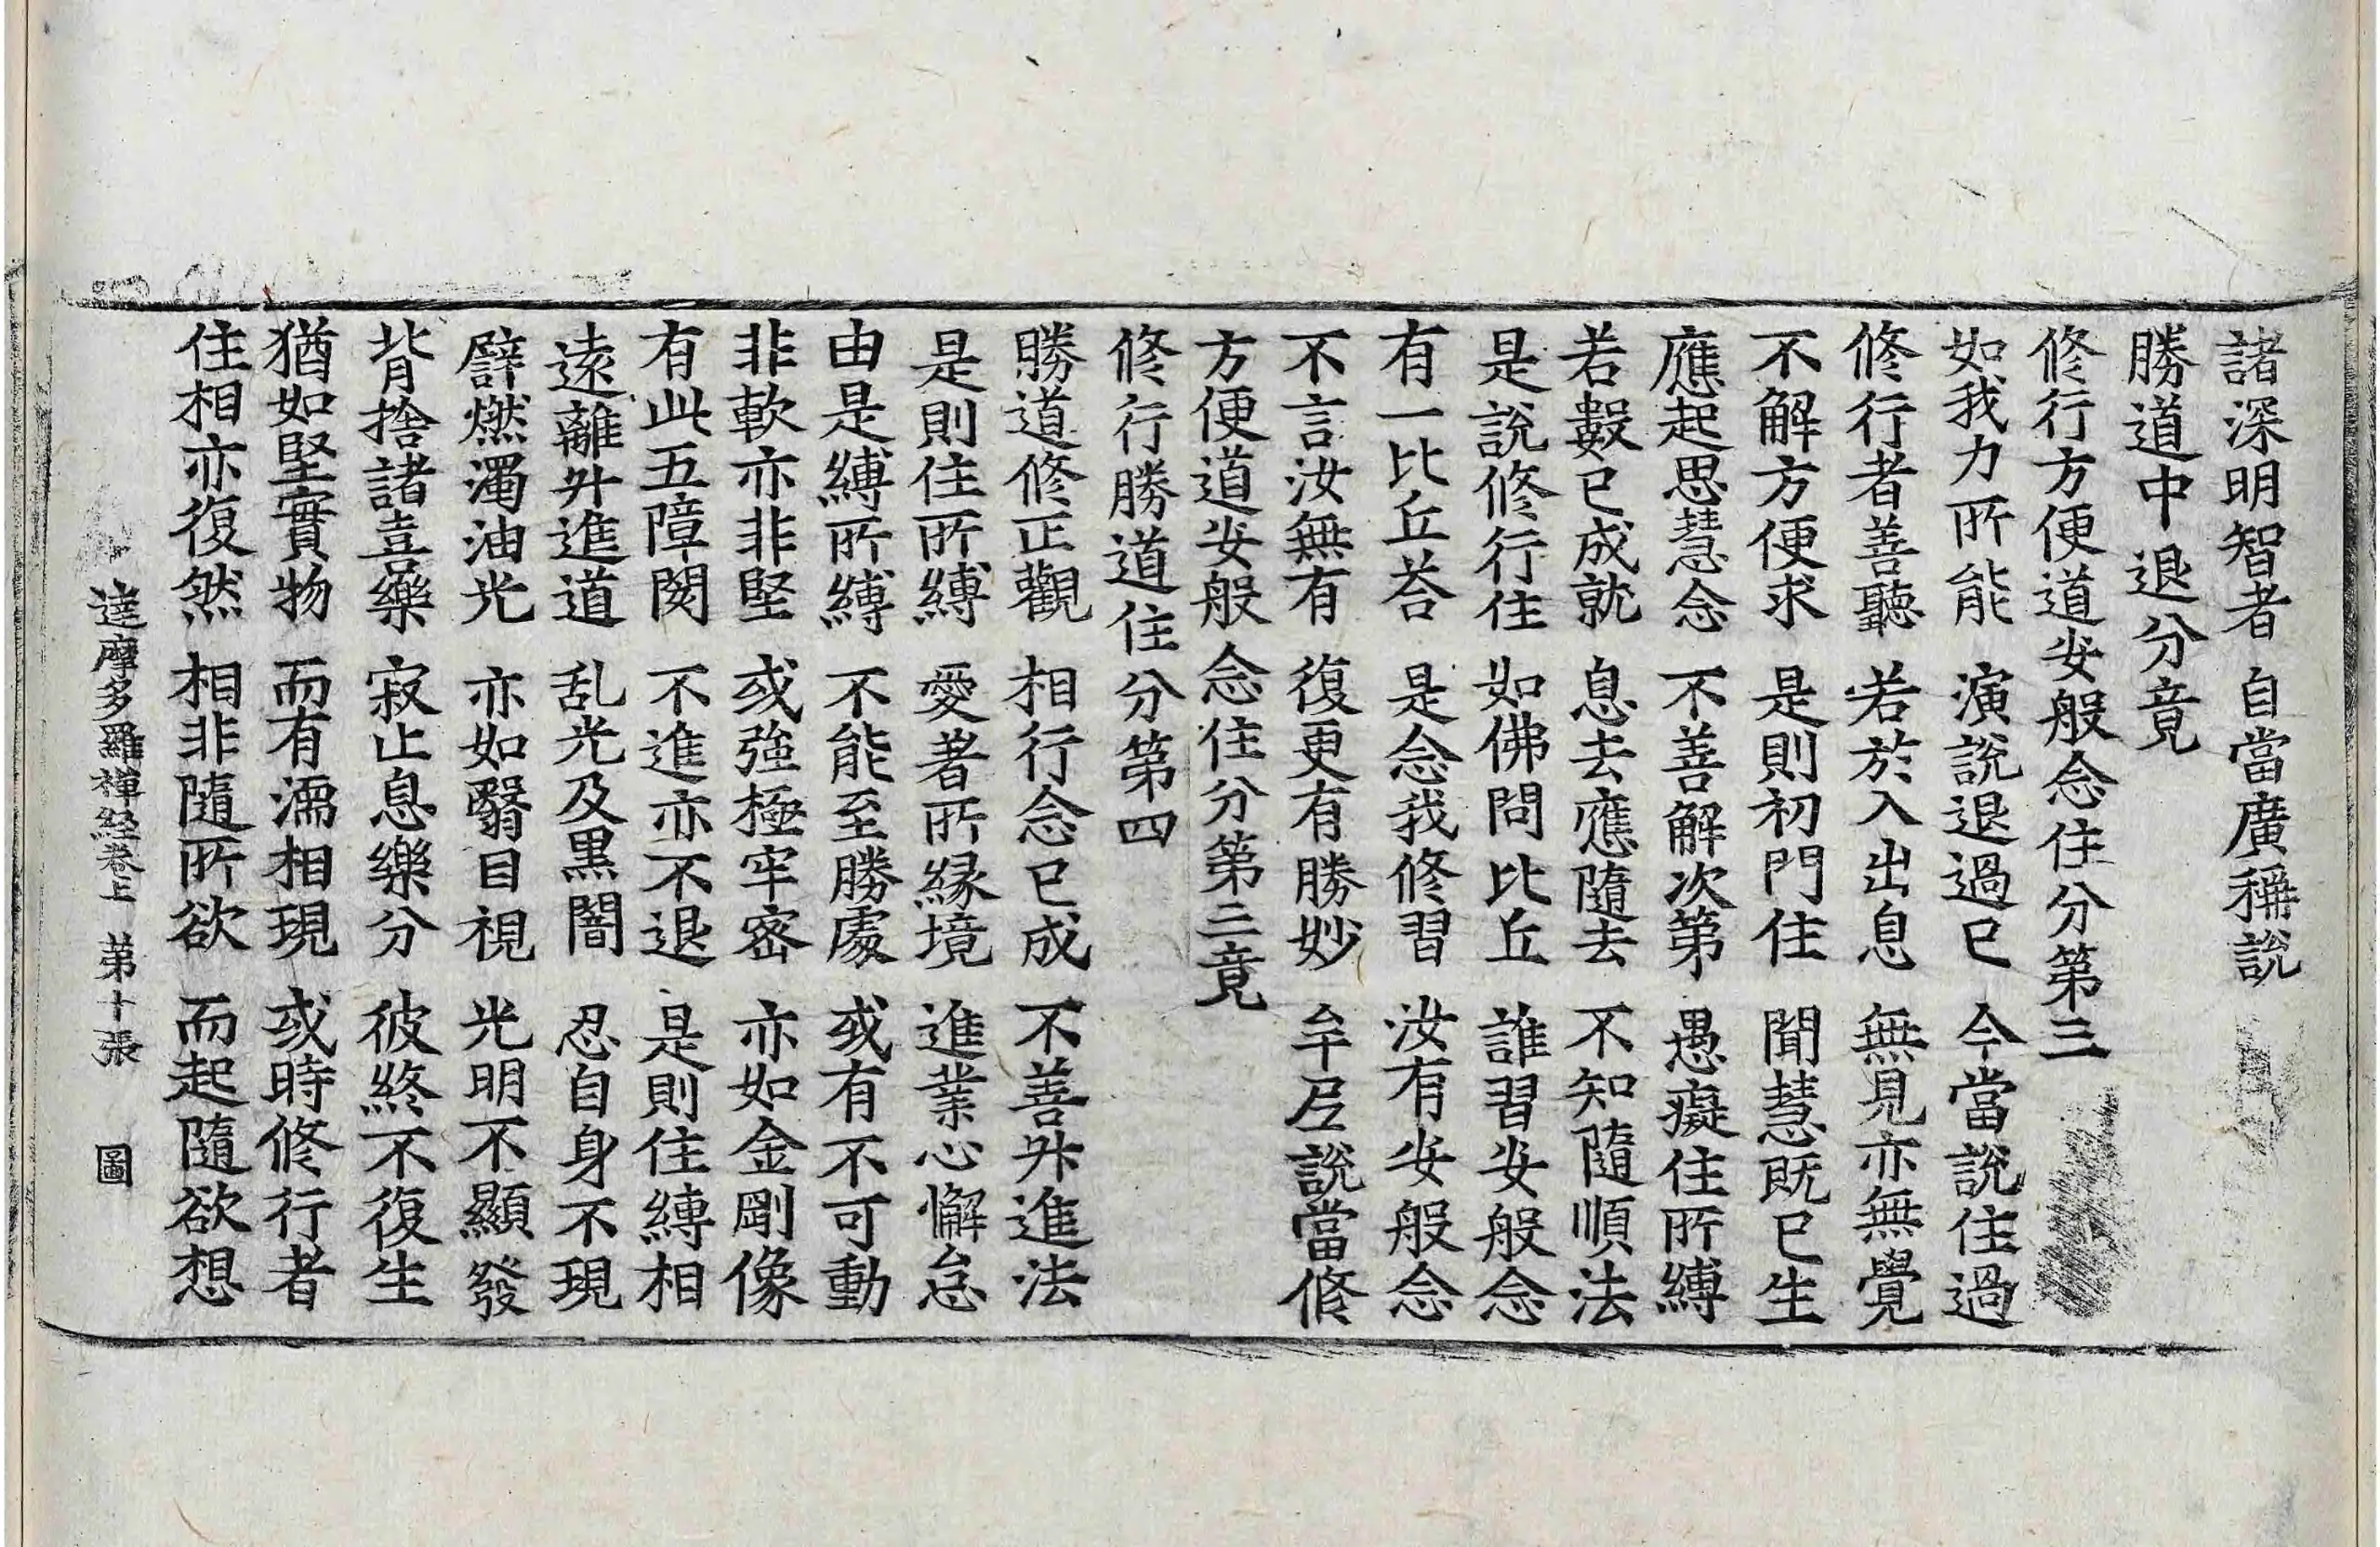 諸深明智者 自當廣稱說
勝道中退分竟
修行方便道安般念住分第三
如我力所能 演說退過已 今當說住過
修行者善聽 若於入出息 無見亦無覺
不解方便求 是則初門住 聞慧既已生
應起思慧念 不善解次第 愚癡住所縛
若數已成就 息去應隨去 不知隨順法
是說修行住 如佛問比丘 誰習安般念
有一比丘荅 是念我修習 汝有安般念
不言汝無有 復更有勝妙 牟尼說當修
方便道安般念住分第三竟
修行勝道住分第四
勝道修正觀 相行念已成 不善升進法
是則住所縛 愛者所緣境 進業心懈怠
由是縛所縛 不能至勝處 或有不可動
非軟亦非堅 或強極牢密 亦如金剛像
有此五障閡 不進亦不退 是則住縛相
遠離升進道 乱光及黑闇 忍自身不現
譬燃濁油光 亦如翳目視 光明不顯發
背捨諸喜樂 寂止息樂分 彼終不復生
猶如堅實物 而有濡相現 或時修行者
住相亦復然 相非隨所欲 而起隨欲想
達摩多羅禪経卷上 第十張 圖